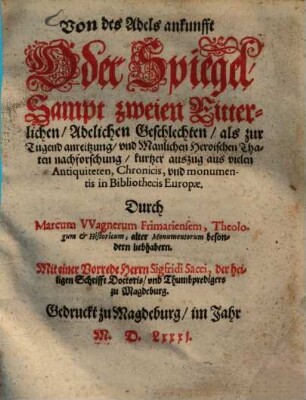 Von des Adels ankunfft
Oder Spiegel/
Sampt zweien Ritter-
lichen/ Adelichen Geschlechten/ als zur
Tugend anreitzung/ vnd Manlichen Heroischen Tha-
ten nachforschung/ kurtzer auszug aus vielen
Antiquiteten, Chronicis, vnd monumen-
tis in Bibliothecis Europæ.
Durch
Marcum VVagnerum Frimariensem, Theolo-
gum & Historicum, alter Monumentorum beson-
dern liebhabern.
Mit einer Vorrede Herrn Sigfridi Sacci, der hei-
ligen Schrifft Doctoris/ vnd Thumbpredigers
zu Magdeburg.
Gedruckt zu Magdeburg/ im Jahr
M. D. LXXXI.